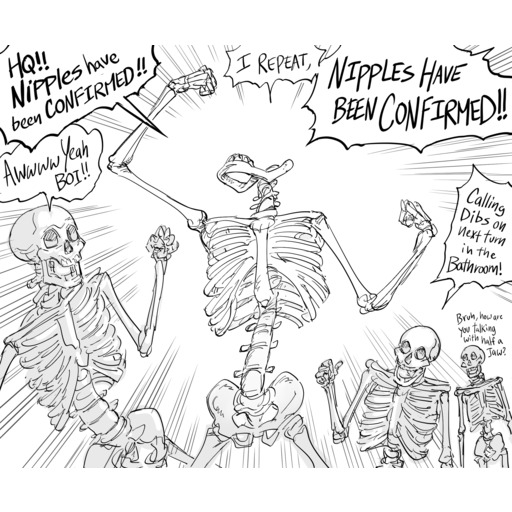 HQ!!
Nipples have
been CONFIRMED!!
I REPEAT,
NIPPLES HAVE
BEEN CONFIRMED!!
AWWWW Yeah
BOI!!
Calling
Dibs on
next turn
in the
Bathroom!
Bruh, how are
you talking
with half a
Jaw?